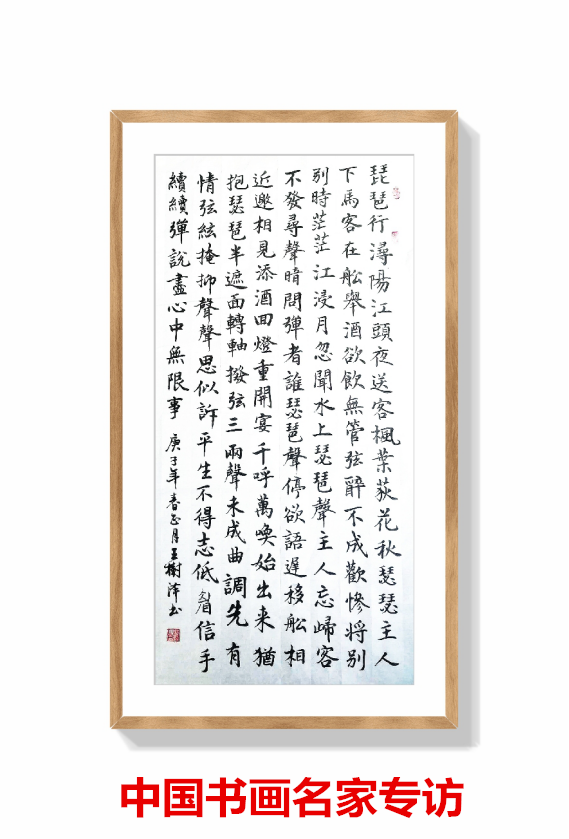 琵琶行潯陽江頭夜送客楓葉荻花秋瑟瑟主人
下馬客在舩舉酒欲飲無管弦醉不成歡慘將別
別時茫茫江浸月忽聞水上瑟琶聲主人忘歸客
不發尋聲暗問彈者誰瑟琶聲停欲語遲移舩相
近邀相見添酒回燈重開宴千呼萬喚始出来猶
抱瑟琶半遮面轉軸撥弦三兩聲未成曲調先有
情弦絃掩抑聲聲思似訴平生不得志低眉信手
續續彈說盡心中無限事 庚子年春正月王樹澤书
中国书画名家专访